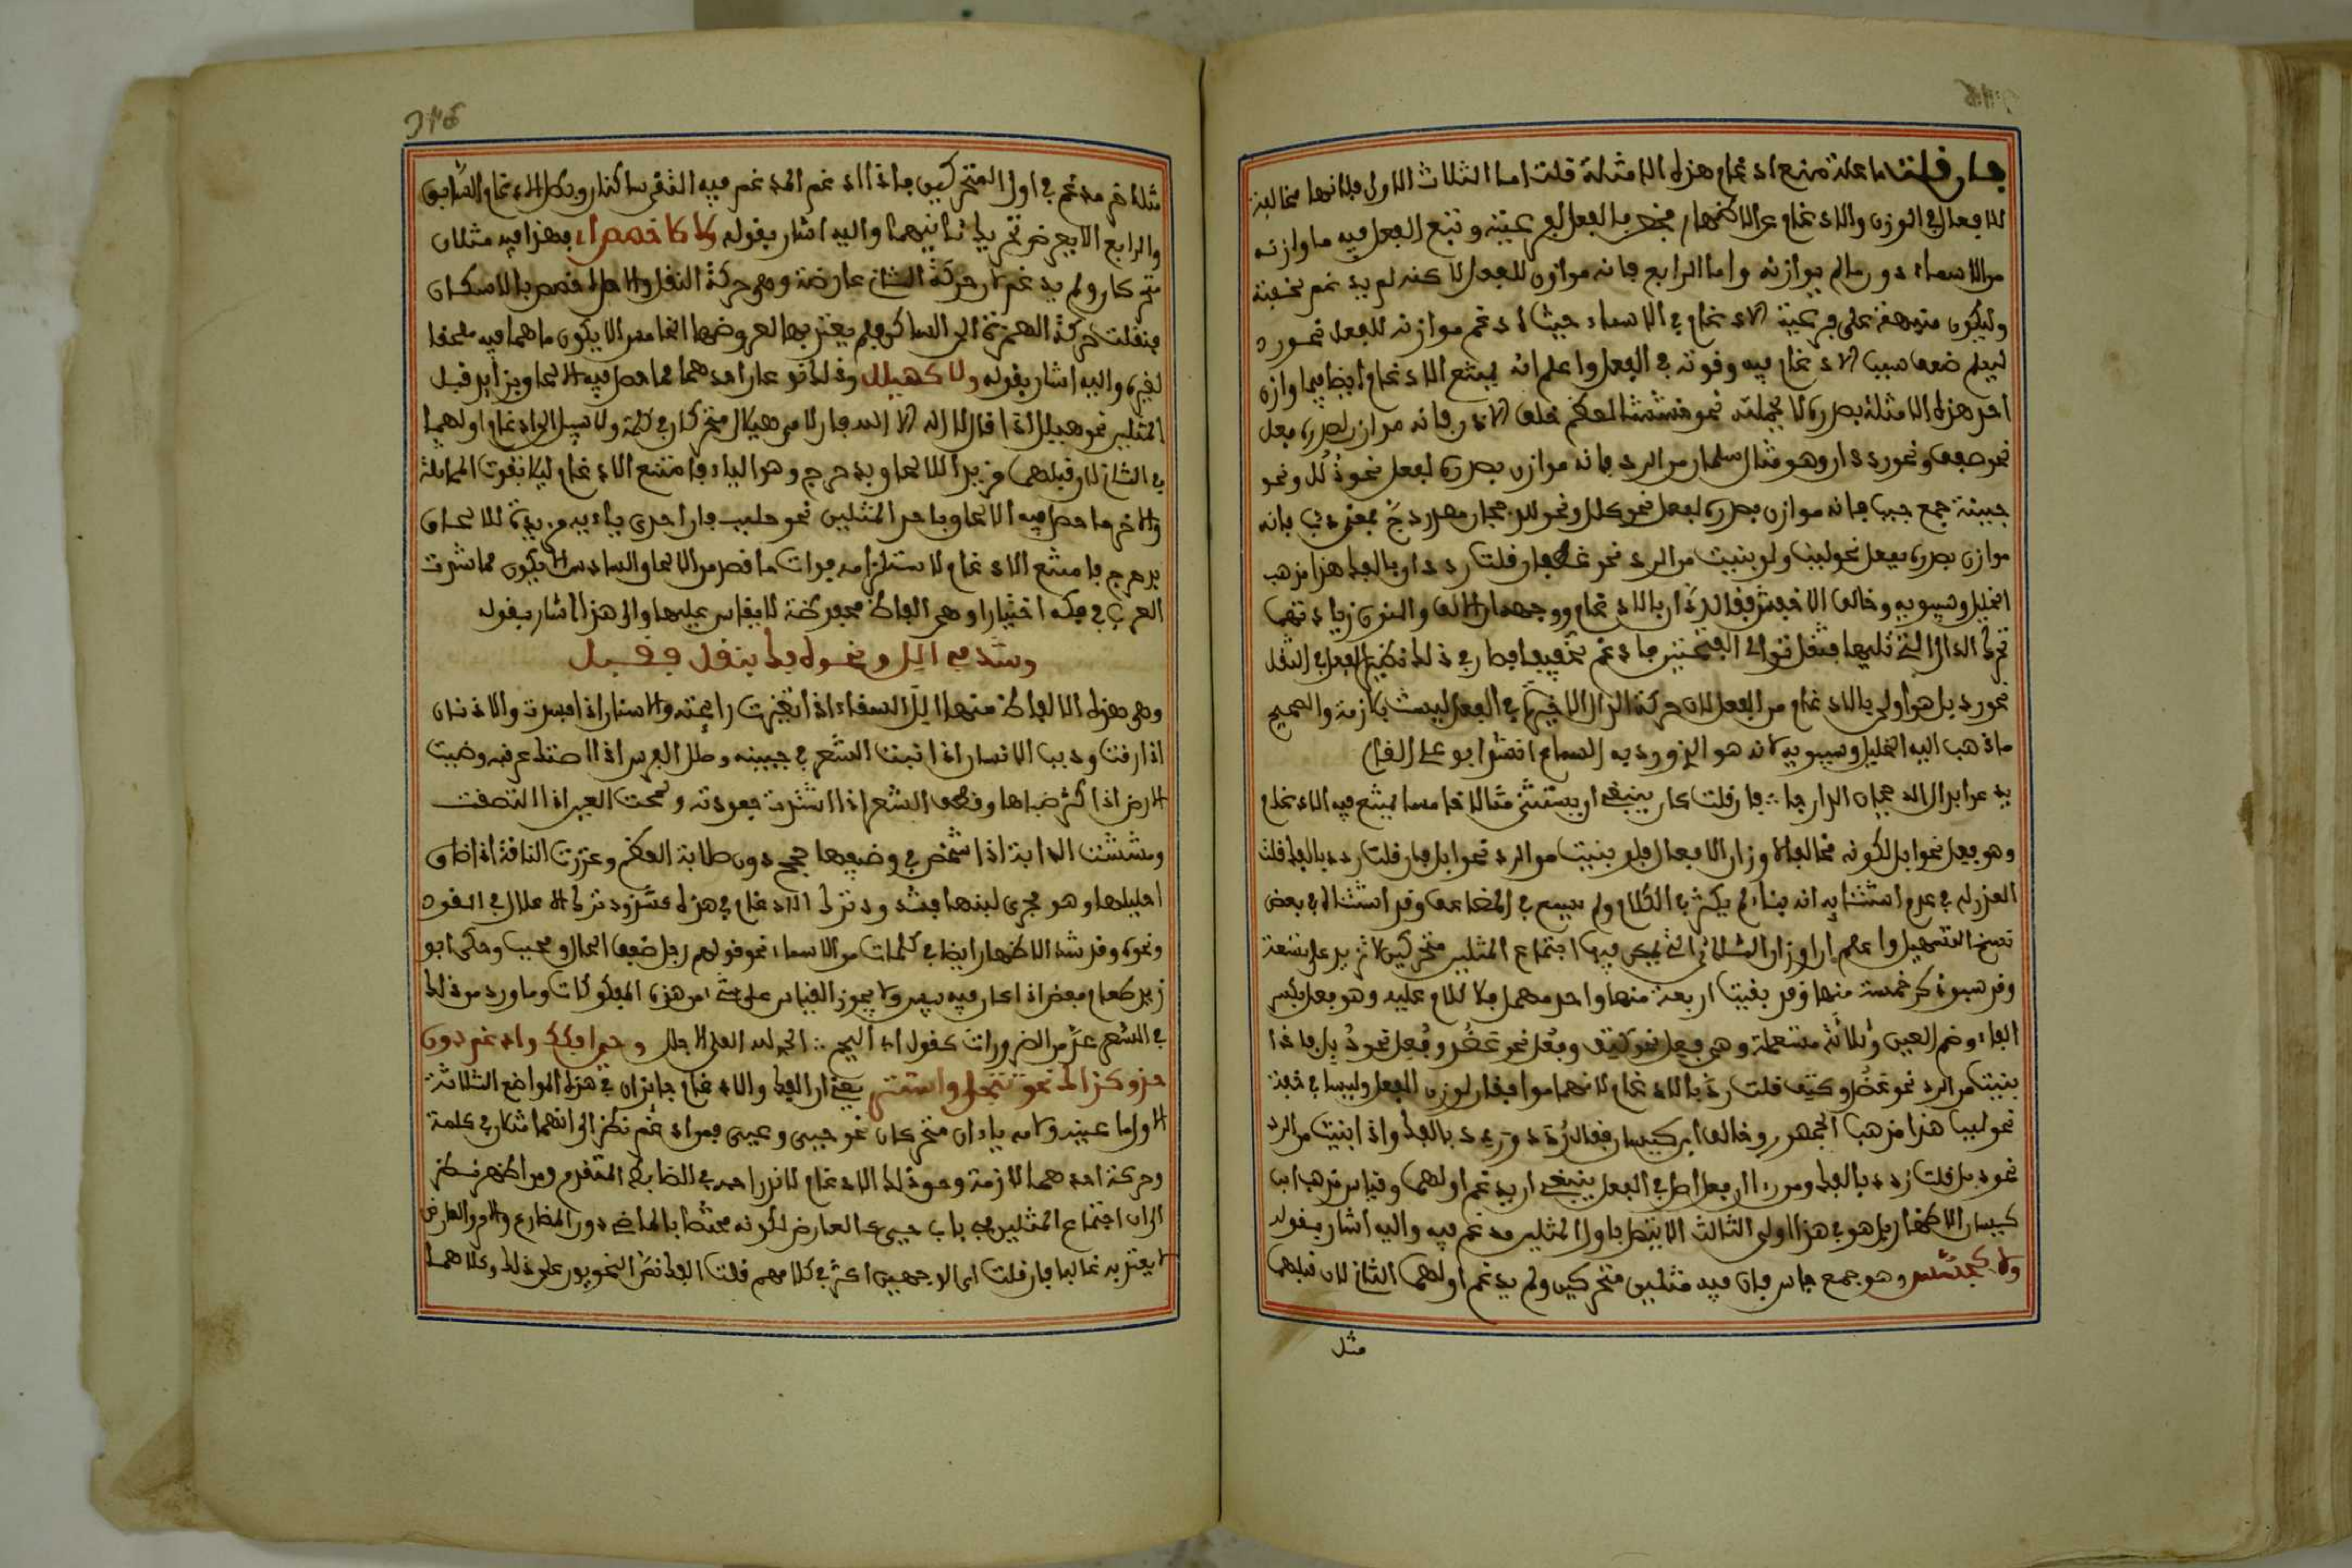 فان قلت ما علة منع ادغام هذه الامثلة قلت اما الثلاث الاول فلانها مخالفة
للافعال في الوزن والادغام فرع الاظهار فخص بالفعل لفرعيته وتبع الفعل فيه ما وازنه
من الاسماء دون ما لم يوازنه واما الرابع فانه موازن للفعل لاكنه لم يدغم لخفته
وليكون منبهة على فرعية الادغام في الاسماء حيث ادغم موازنه للفعل نحو رد
ليعلم ضعف سبب الادغام فيه وقوته في الفعل واعلم انه يمتنع الادغام ايضا فيما وازن
احد هذه الامثلة بصدره لا بجملته نحو خششاء لعظم خلف الاذن فانه موازن بصدره فعل
نحو صفف ونحو رددان وهو مثال سلطان من الرد فانه موازن بصدره لفعل نحو ذلل ونحو
حببة جمع حب فانه موازن بصدره لفعل نحو كلل ونحو الدججان مصدر دج بمعنى دب فانه
موازن بصدره بفعل نحو لبب ولو بنيت من الرد نحو غطفان قلت رددان بالفك هذا مذهب
الخليل وسيبويه وخالف الاخفش فقال ردان بالادغام ووجهه ان الالف والنون زيادتهما
نحو رد بل هو اولى بالادغام من الفعل لان حركة الدال الاخيرة في الفعل ليست بلازمة والصحيح
ما ذهب اليه الخليل وسيبويه لانه هو الذي ورد به السماع انشد ابو علي القالي
فان قلت كان ينبغي ان يستثنى مثالا خامسا يمتنع فيه الادغام
وهو فعل نحو ابل لكونه مخالفا لاوزان الافعال فلو بنيت من الرد نحو ابل فان قلت ردد بالفك قلت
العذر له في عدم استثنايه انه بناء لم يكثر في الكلام ولم يسمع في المضاعف وقد استثناه في بعض
نسخ التسهيل واعلم ان اوزان الثلاثي التي يمكن فيها اجتماع المثلين متحركين لا تزيد على تسعة
وقد سبق ذكر خمسة منها وقد بقيت اربعة منها واحد مهمل فلا كلام عليه وهو فعل بكسر
الفاء وضم العين وثلاثة مستعملة وهي فعل نحو كتف وفعل نحو عضد وفعل نحو دئل فاذا
بنيت من الرد نحو عضد وكتف قلت رد بالادغام لانهما موافقان لوزن الفعل وليسا في خفة
نحو لبب هذا مذهب الجمهور وخالف ابن كيسان فقال ردد وردد بالفك واذا بنيت من الرد
نحو دئل قلت ردد بالفك ومن راى ان فعل اصل في الفعل ينبغي ان يدغم اولهما وقياس مذهب ابن
كيسان الاظهار بل هو في هذا اولى الثالث الا يتصل باول المثلين مدغم فيه واليه اشار بقوله
ولا كجسس وهو جمع جاس فان فيه مثلين متحركين ولم يدغم اولهما في الثاني لان قبلهما
مثل
مثلا اخر مدغم في اول المتحركين فاذا ادغم المدغم فيه التقى ساكنان وبطل الادغام السابق
والرابع الا يعرض تحريك ثانيهما واليه اشار بقوله ولا كاخصص ابي فهذا فيه مثلان
متحركان ولم يدغم لان حركة الثاني عارضة وهي حركة النقل والاصل اخصص بالاسكان
فنقلت حركة الهمزة الى الساكن فلم يعتد بها لعروضها الخامس الا يكون ما هما فيه ملحقا
بغيره واليه اشار بقوله ولا كهيلل وذلك نوعان احدهما ما حصل فيه الالحاق بزايد قبل
المثلين نحو هيلل اذا قال لا اله الا الله فان لامي هيلل متحركان في كلمة ولا سبيل الى ادغام اولهما
في الثاني لان قبلهما مزيدا للالحاق بدحرج وهو الياء فامتنع الادغام ليلا تفوت المماثلة
والاخر ما حصل فيه الالحاق باحد المثلين نحو جلبب فان احدى باءيه مزيدة للالحاق
بدحرج فامتنع الادغام لاستلزامه فوات ما قصد من الالحاق والسادس الا يكون مما شذت
العرب في فكه اختيارا وهي الفاظ محفوظة لا يقاس عليها والى هذا اشار بقوله
وشذ في الل ونحوه فك بنقل فقبل
وهي هذه الالفاظ منها الل السقاء اذا تغيرت رايحته والاسنان اذا فسدت والاذنان
اذا رقت ودبب الانسان اذا نبت الشعر في جبينه وصكك الفرس اذا اصطك عرقوباه وضببت
الارض اذا كثر ضبابها وقطط الشعر اذا اشتدت جعودته ولححت العين اذا التصقت
ومششت الدابة اذا شخص في وضيفها حجم دون صلابة العظم وعززت الناقة اذا ضاق
احليلها وهو مجرى لبنها فشذوذ ترك الادغام في هذه كشذوذ ترك الاعلال في القود
ونحوه وقد شذ الاظهار ايضا في كلمات من الاسماء نحو قولهم رجل ضفف الحال ومحبب وحكى ابو
زيد طعام قضض اذا كان فيه يبس ولا يجوز القياس على شيء من هذه المفكوكات وما ورد من ذلك
في الشعر عد من الضرورات كقول ابي النجم ∴ الحمد لله العلي الاجلل وحيي افكك وادغم دون
حذر كذاك نحو تتجلى واستتر يعني ان الفك والادغام جائزان في هذه المواضع الثلاثة
الاول ما عينه ولامه ياءان متحركان نحو حيي وعيي فمن ادغم نظر الى انهما مثلان في كلمة
وحركة احدهما لازمة وحق ذلك الادغام لاندراجه في الضابط المتقدم ومن اظهر نظر
الى ان اجتماع المثلين في باب حيي كالعارض لكونه مختصا بالماضي دون المضارع والامر والعارض
لا يعتد به غالبا فان قلت اي الوجهين اكثر في كلامهم قلت الفك نص النحويون على ذلك وكلاهما